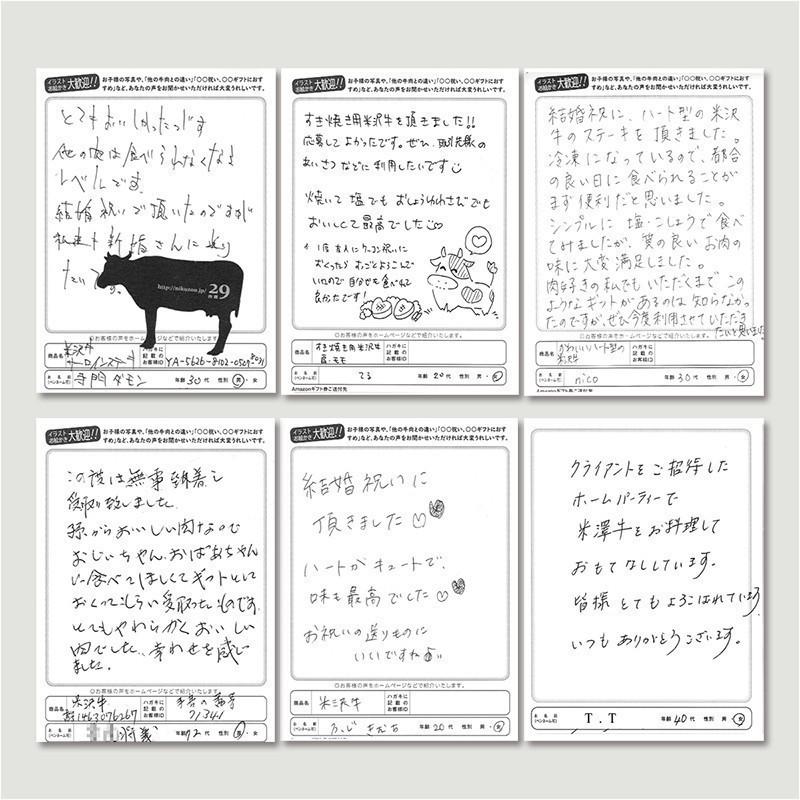 イラスト
お絵かき
大歓迎!!
お子様の写真や、「他の牛肉との違い」「〇〇祝い、〇〇ギフトにおす
すめ」など、あなたの声をお聞かせいただければ大変うれしいです。
とてもおいしかったです
他の肉は食べられなくなる
レベルです。
結婚祝いで頂いたのですが
新婚さんに送り
たいです。
http://nikuzou.jp/ 29
〇お客様の声をホームページなどで紹介いたします。
商品名
米沢牛
サーロインステーキ
ハガキに
記載の
お客様ID
YA-5626-8102-0529-8031
お名前
(ペンネーム可)
寺門ダモン
年齢 30代 性別 男・女
イラスト
お絵かき
大歓迎!!
お子様の写真や、「他の牛肉との違い」「〇〇祝い、〇〇ギフトにおす
すめ」など、あなたの声をお聞かせいただければ大変うれしいです。
すき焼き用米沢牛を頂きました!!
応募してよかったです。ぜひ、取引先様の
あいさつなどに利用したいです
焼いて塩でもおしょうゆわさびでも
おいしくて最高でした
おくったらすっごとよろこんで
いたので自分も食べれて
良かったです!
〇お客様の声をホームページなどで紹介いたします。
商品名
すき焼き用米沢牛
肩・モモ
ハガキに
記載の
お客様ID
お名前
(ペンネーム可)
てる
年齢 20代 性別 男・女
Amazonギフト券ご送付先
イラスト
お絵かき
大歓迎!!
お子様の写真や、「他の牛肉との違い」「〇〇祝い、〇〇ギフトにおす
すめ」など、あなたの声をお聞かせいただければ大変うれしいです。
結婚祝に、ハート型の米沢
牛のステーキを頂きました。
冷凍になっているので、都合
の良い日に食べられることが
まず便利だと思いました。
シンプルに塩・こしょうで食べ
てみましたが、質の良いお肉の
味に大変満足しました。
肉好きの私でもいただくまでこの
ようなギフトがあるのは知らなかっ
たのですが、ぜひ今度利用させていただき
たいと思いました
〇お客様の声をホームページなどで紹介いたします。
商品名
かわいいハート型の
米沢牛
ハガキに
記載の
お客様ID
お名前
(ペンネーム可)
nico
年齢 30代 性別 男・女
イラスト
お絵かき
大歓迎!!
お子様の写真や、「他の牛肉との違い」「〇〇祝い、〇〇ギフトにおす
すめ」など、あなたの声をお聞かせいただければ大変うれしいです。
この度は無事到着し
受取り致しました。
孫からおいしい肉なので
おじいちゃん、おばあちゃん
に食べてほしくてギフトとして
おくってもらい受取ったものです。
とてもやわらかくおいしい
肉でした。幸わせを感じ
ました。
〇お客様の声をホームページなどで紹介いたします。
商品名
米沢牛
ハガキに
記載の
お客様ID
71341
お名前
(ペンネーム可)
年齢 72代 性別 男・女
イラスト
お絵かき
大歓迎!!
お子様の写真や、「他の牛肉との違い」「〇〇祝い、〇〇ギフトにおす
すめ」など、あなたの声をお聞かせいただければ大変うれしいです。
結婚祝いに
頂きました♡
ハートがキュートで、
味も最高でした♡
お祝いの送りものに
いいですね
〇お客様の声をホームページなどで紹介いたします。
商品名
米沢牛
ハガキに
記載の
お客様ID
お名前
(ペンネーム可)
年齢 20代 性別 男・女
クライアントをご招待した
ホームパーティーで
米澤牛をお料理して
おもてなししています。
皆様とてもよろこばれています
いつもありがとうございます。
お名前
(ペンネーム可)
T.T
年齢 40代 性別 男・女